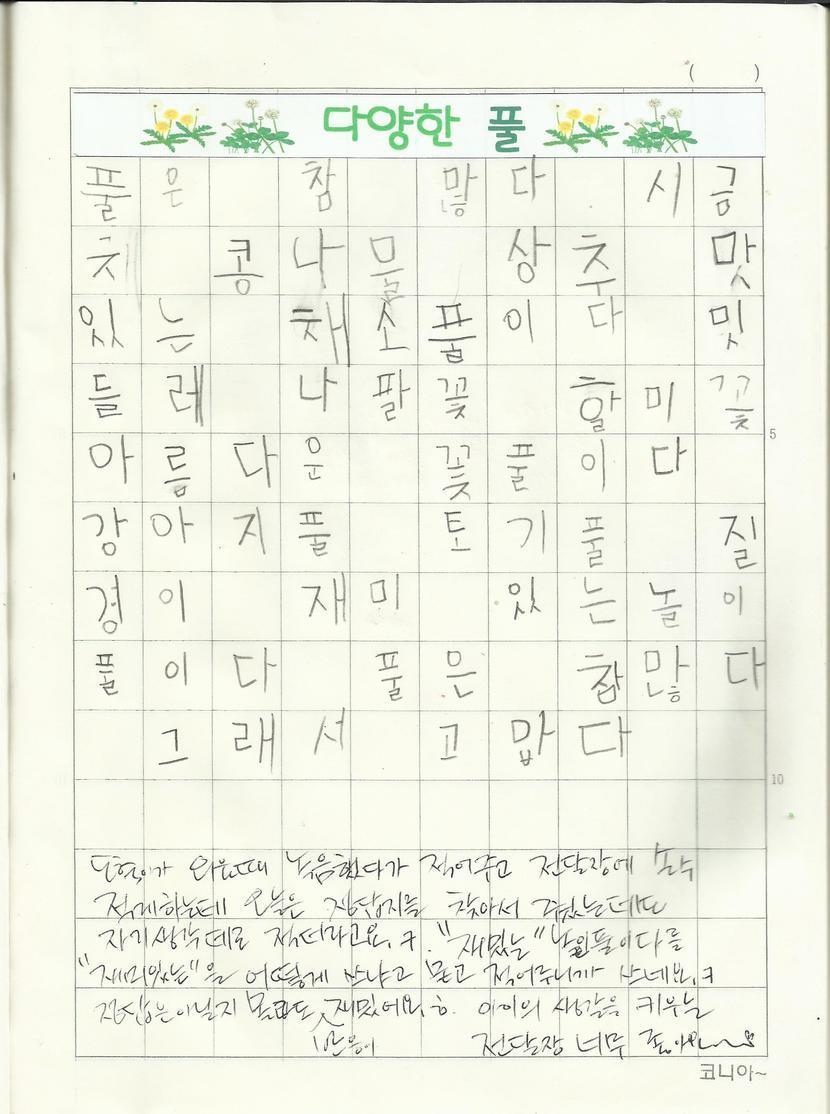 ( )
다양한 풀
풀은 참 많다 시금
치 콩나믈 상추 맛
있는 채소풀이다 밋
들레 나팔꽃 할미꽃
아름다운 꽃풀이다
강아지풀 토기풀 질
경이 재미 있는놀이
풀이다 풀은 참많다
그래서 고맙다
5
10
적어주고 전달장에
적게하는데 오늘은 찾아서
자기생각대로 적더라고요.ㅋ. "재밌는" 놀이풀이다를
"재미있는"을 어떻게 쓰냐고 묻고 적어주니까 쓰네요.ㅋ
정답은아닐지 몰라도 재밌어요.ㅎ. 아이의 생각을 키우는
반응이 전달장 너무 좋아
코니아~